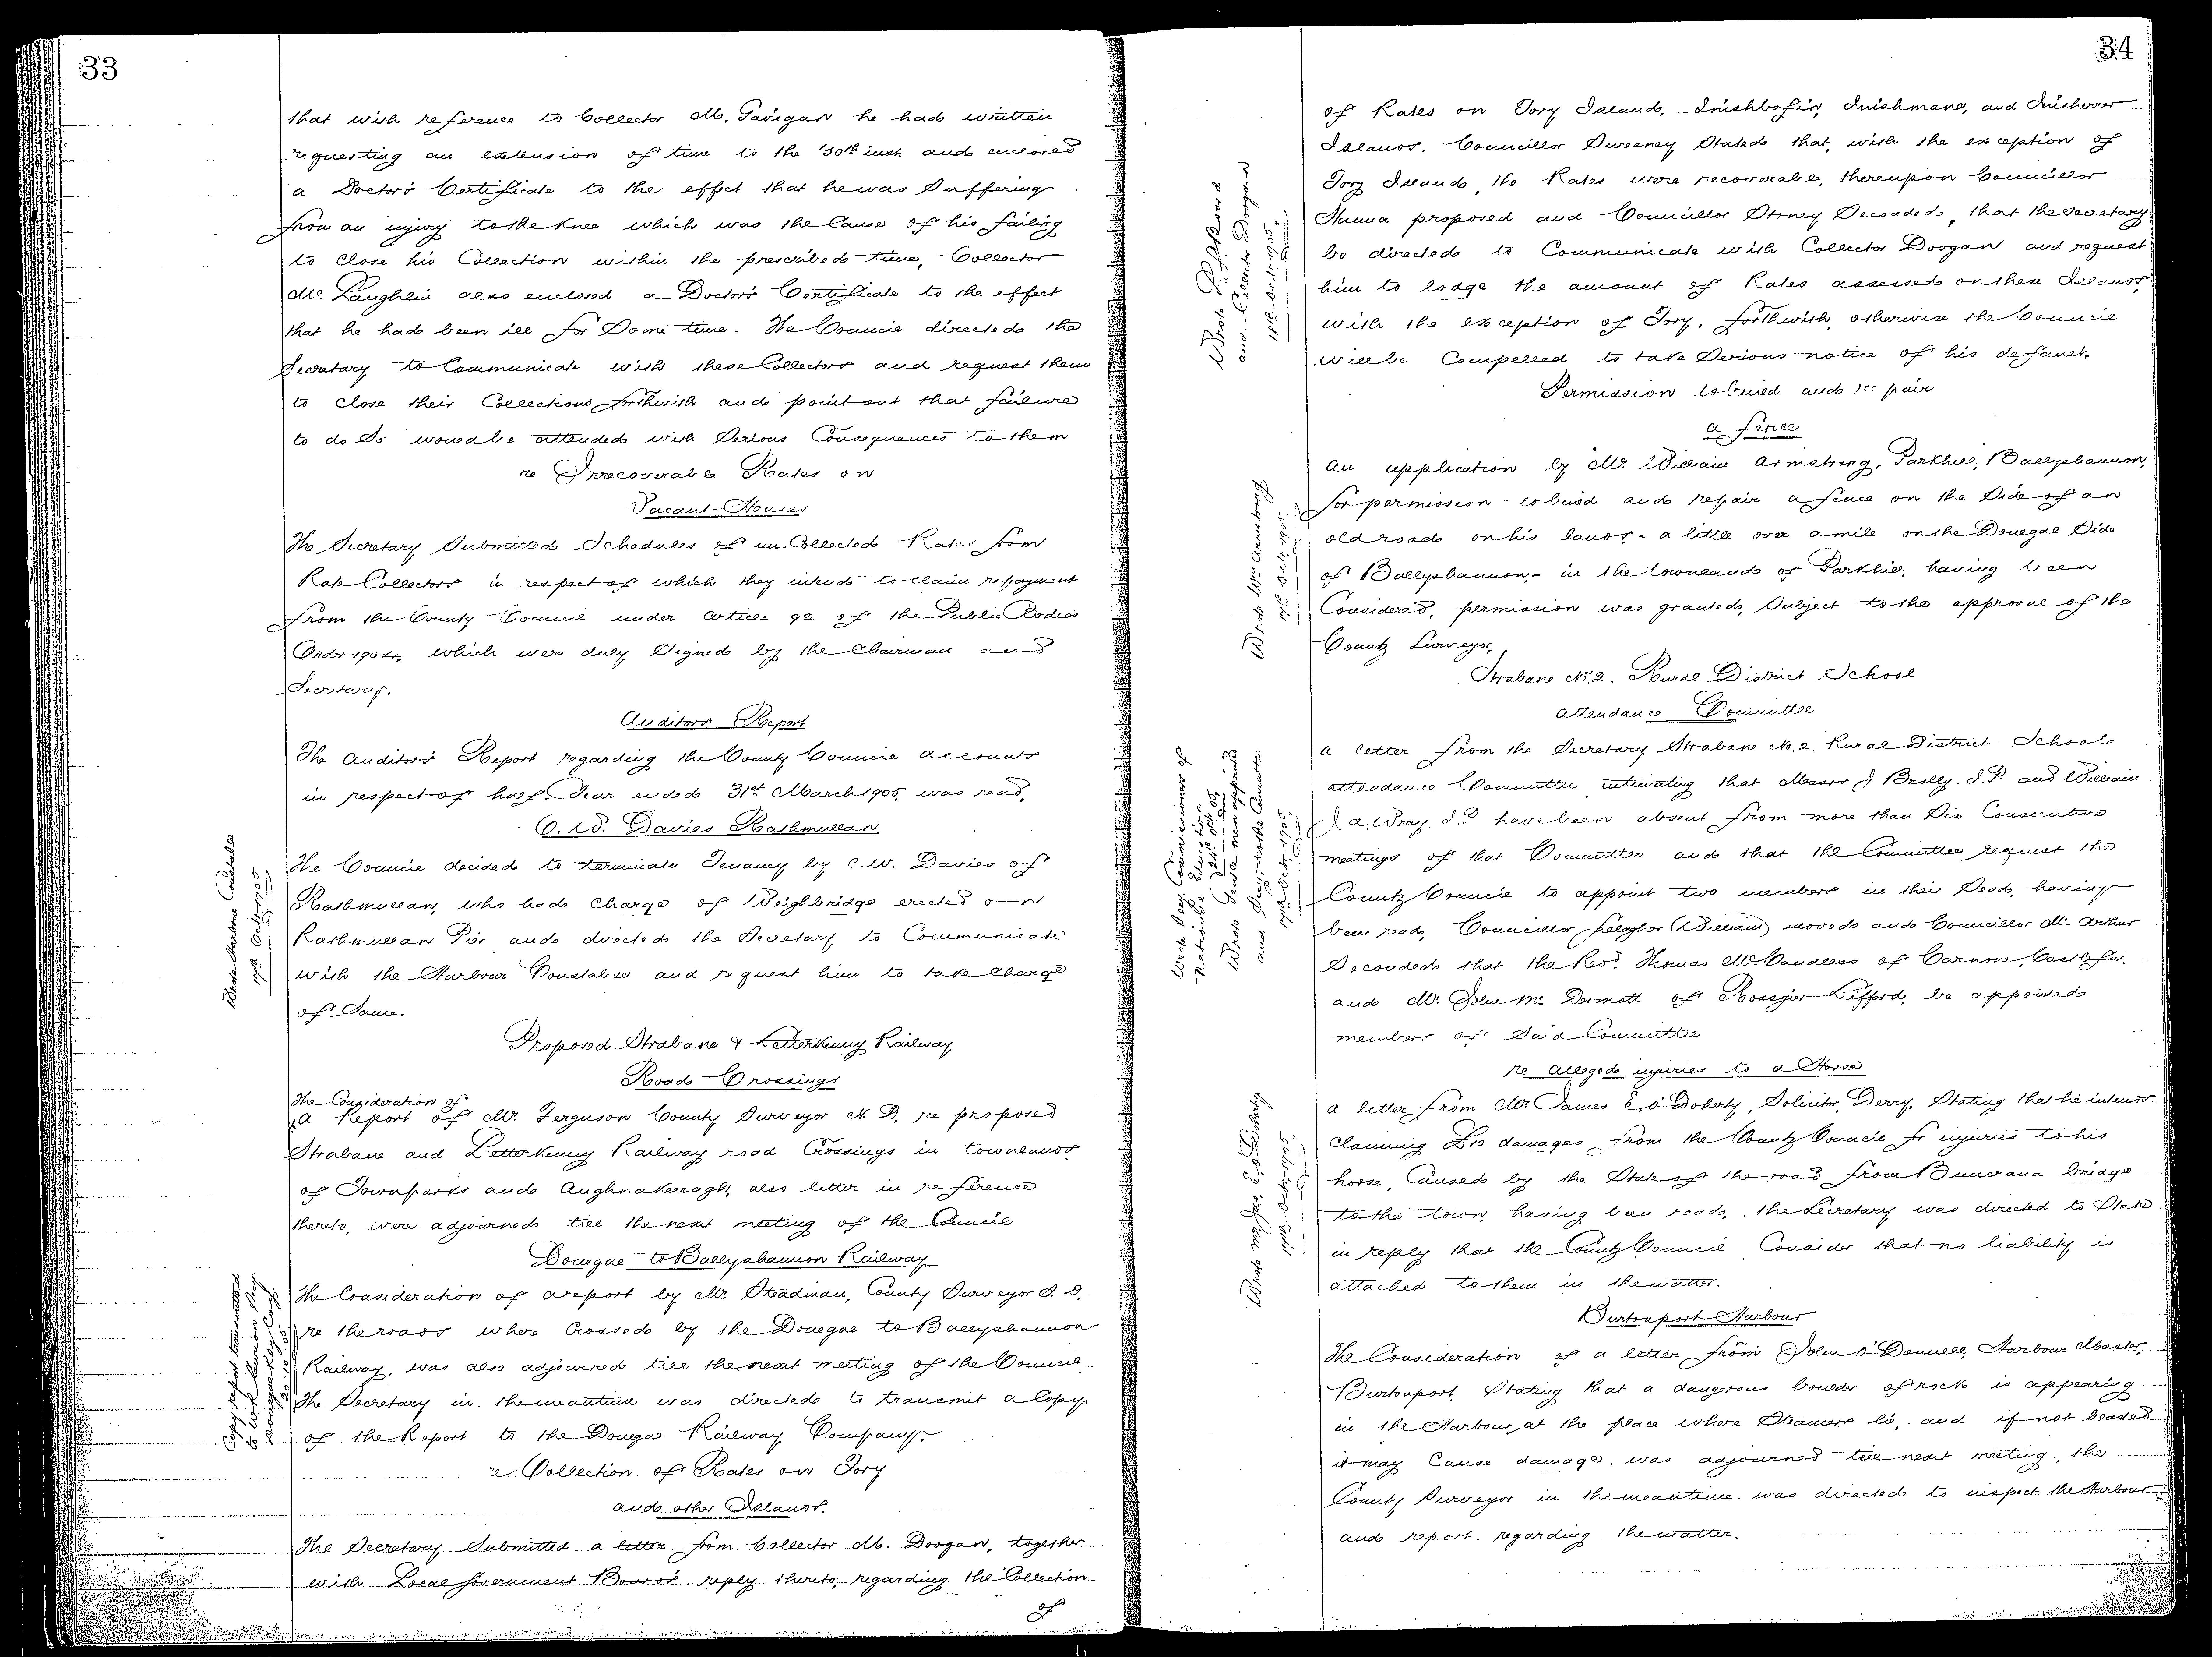 33
that with reference to Collector M. Gavigan he had written
requesting an extension of time to the 30th inst. and enclosed
a Doctor's Certificate to the effect that he was Suffering
from an injury to the Knee which was the Cause of his failing
to Close his Collection within the prescribed time, Collector
Mc Laughlin also enclosed a Doctor's Certificate to the effect
that he had been ill for Some time. The Council directed the
Secretary to Communicate with these Collectors and request them
to Close their Collections forthwith and point out that failure
to do So would be attended with Serious Consequences to them
re Irrecoverable Rates on
Vacant Houses
The Secretary Submitted Schedules of un-Collected Rates from
Rate Collectors in respect of which they intend to claim repayment
from the County Council under Article 92 of the Public Bodies
Order 1904, which were duly Signed by the Chairman and
Secretary.
Auditors Report
The Auditor's Report regarding the County Council accounts
in respect of half-Year ended 31st March 1905, was read,
C. W. Davies Rathmullan
The Council decided to terminate Tenancy by C. W. Davies of
Rathmullan, who had Charge of Weighbridge erected on
Rathmullan Pier and directed the Secretary to Communicate
with the Harbour Constable and request him to take Charge
of Same.
Wrote Harbour Constable
17th Oct. 1905
Proposed Strabane & Letterkenny Railway
Road Crossings
The Consideration of
a Report of Mr. Ferguson County Surveyor N. D. re proposed
Strabane and Letterkenny Railway road Crossings in townlands
of Townparks and Aughnakeeragh, also letter in reference
thereto, were adjourned till the next meeting of the Council
Donegal to Ballyshannon Railway
The Consideration of a report by Mr. Steadman, County Surveyor S. D.
re the roads where Crossed by the Donegal to Ballyshannon
Railway, was also adjourned till the next meeting of the Council.
The Secretary in the meantime was directed to transmit a Copy
of the Report to the Donegal Railway Company.
Copy report transmitted
re Collection of Rates on Tory
and other Islands.
The Secretary Submitted a letter from Collector M. Doogan, together
with Local Government Board's reply thereto, regarding the Collection
of
34
of Rates on Tory Island, Inishbofin, Inishmane, and Inisherrer
Islands. Councillor Sweeney Stated that, with the exception of
Tory Island, the Rates were recoverable, thereupon Councillor
proposed and Councillor Storey Seconded, that the Secretary
be directed to Communicate with Collector Doogan and request
him to lodge the amount of Rates assessed on these Islands,
with the exception of Tory, forthwith, otherwise the Council
will be Compelled to take Serious notice of his default.
Wrote
and Collector Doogan
18th Oct. 1905.
Permission to build and repair
a fence
An application by Mr. William Armstrong, Parkhill, Ballyshannon,
for permission to build and repair a fence on the Side of an
old road on his lands - a little over a mile on the Donegal Side
of Ballyshannon - in the townland of Parkhill, having been
Considered, permission was granted, Subject to the approval of the
County Surveyor,
Wrote Wm Armstrong
17th Oct. 1905.
Strabane No. 2. Rural District School
Attendance Committee
A letter from the Secretary Strabane No. 2. Rural District School
Attendance Committee intimating that Messrs J Brolly. J.P. and William
J. A. Wray, J.P. have been absent from more than Six Consecutive
meetings of that Committee and that the Committee request the
County Council to appoint two members in their Stead, having
been read, Councillor Gallagher (William) moved and Councillor Mc Arthur
Seconded that the Revd. Thomas McCandless of Carnone, Castlefin.
and Mr. John Mc Dermott of Rossgier Lifford, be appointed
members of Said Committee
Wrote Secy. Commissioners of
National Education
21st Oct 05,
Wrote Gentlemen appointed
and Secy. to the Committee
17th Oct. 1905.
re alleged injuries to a Horse
A letter from Mr James E. O'Doherty, Solicitor, Derry, Stating that he intends
Claiming £10 damages from the County Council for injuries to his
horse, Caused by the State of the road from Buncrana bridge
to the town, having been read, the Secretary was directed to State
in reply that the County Council Consider that no liability is
attached to them in the matter.
Wrote Mr Jas. E. O'Doherty
17th Oct. 1905.
Burtonport Harbour
The Consideration of a letter from John O'Donnell, Harbour Master,
Burtonport, Stating that a dangerous boulder of rock is appearing
in the Harbour, at the place where Steamers lie, and if not
it may Cause damage, was adjourned till next meeting, the
County Surveyor in the meantime was directed to inspect the Harbour
and report regarding the matter.